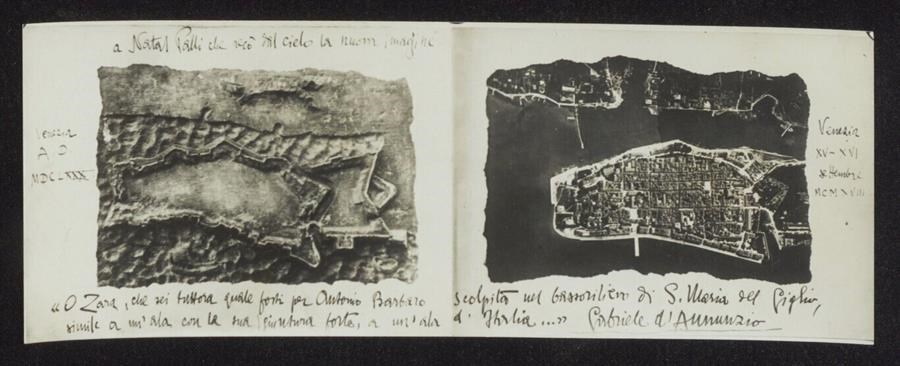 a Natal Palli che recò dal cielo la nuova imagine
Venezia
A D
MDCLXXX
Venezia
XV-XVI
settembre
MCMXVIII
"O Zara, che sei tuttora quale fosti per Antonio Barbaro scolpita nel bassorilievo di S. Maria del Giglio,
simile a un'ala con la sua giuntura forte, a un'ala d'Italia..." Gabriele d'Annunzio